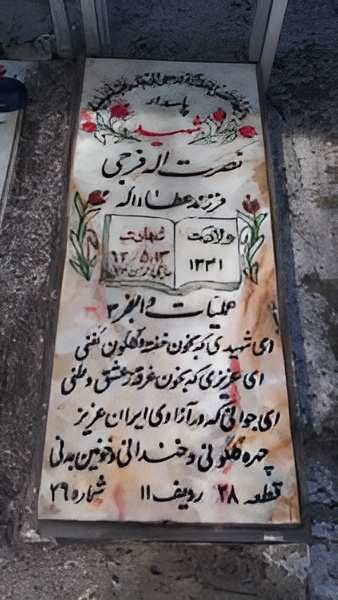 پاسدار
شهید
نصرت اله فرجی
فرزند عطاء اله
ولادت
۱۳۳۱
شهادت
۶۲،۵،۱۳
عملیات والفجر ۳
ای شهیدی که بخون خفته و گلگون کفنی
ای عزیزی که بخون غرقه ز عشق وطنی
ای جوانی که در آزادی ایران عزیز
چهره گلگونی و خندانی و خونین بدنی
قطعه ۲۸ ردیف ۱۱ شماره ۲۶